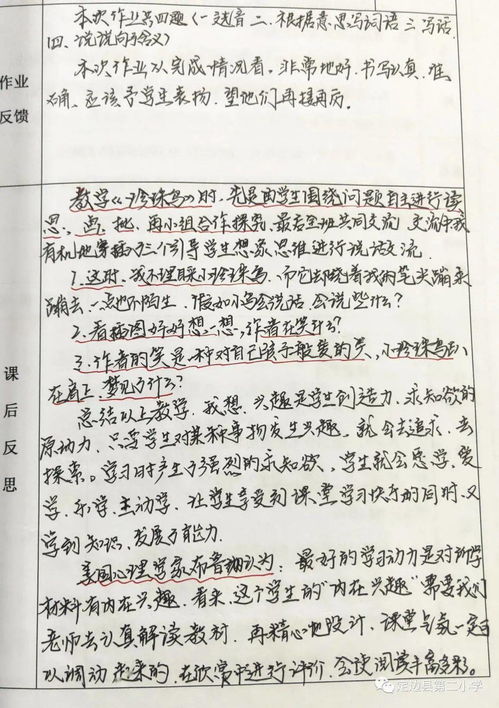 本次作业共四题（一选音 二、根据意思写词语 三 写话
四、说说句子含义）
作业
反馈
本次作业从完成情况看，非常地好，书写认真、准
确，应该予学生表扬，望他们再接再厉。
教学《珍珠鸟》时，先是由学生围绕问题自主进行读、
思、画、批，再小组合作探究，最后全班共同交流，交流中我
有机地穿插了三个引导学生想象思维进行说话交流。
1、这时，我不理睬小珍珠鸟，而它却绕着我的笔尖蹦来
蹦去，一点也不陌生，假如小鸟会说话，会说些什么？
2、看插图好好想一想，作者在笑什么？
3、作者的笑是一种对自己孩子般爱的笑，小珍珠鸟趴
在肩上，梦见了什么？
课
后
反
思
总结以上教学，我想，兴趣是学生创造力、求知欲的
原动力，只要学生对某种事物发生兴趣，就会去追求、去
探索。学习时产生了强烈的求知欲，学生就会愿学、爱
学、乐学、主动学，让学生享受到课堂学习快乐的同时，又
学到知识、发展了能力。
美国心理学家布鲁纳认为：最好的学习动力是对所学
材料有内在兴趣。看来，这个学生的“内在兴趣”需要我们
老师去认真解读教材，再精心地设计，课堂气氛一定可
以调动起来的，在欣赏中进行评价，会使阅读丰富多彩。
定边县第二小学